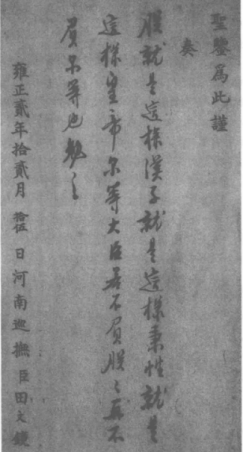 聖鑒為此謹
奏
朕就是這樣漢子就是這樣秉性就是
這樣皇帝尔等大臣若不負朕朕再不
負尔等也勉之
雍正貳年拾貳月拾伍日河南巡撫臣田文鏡